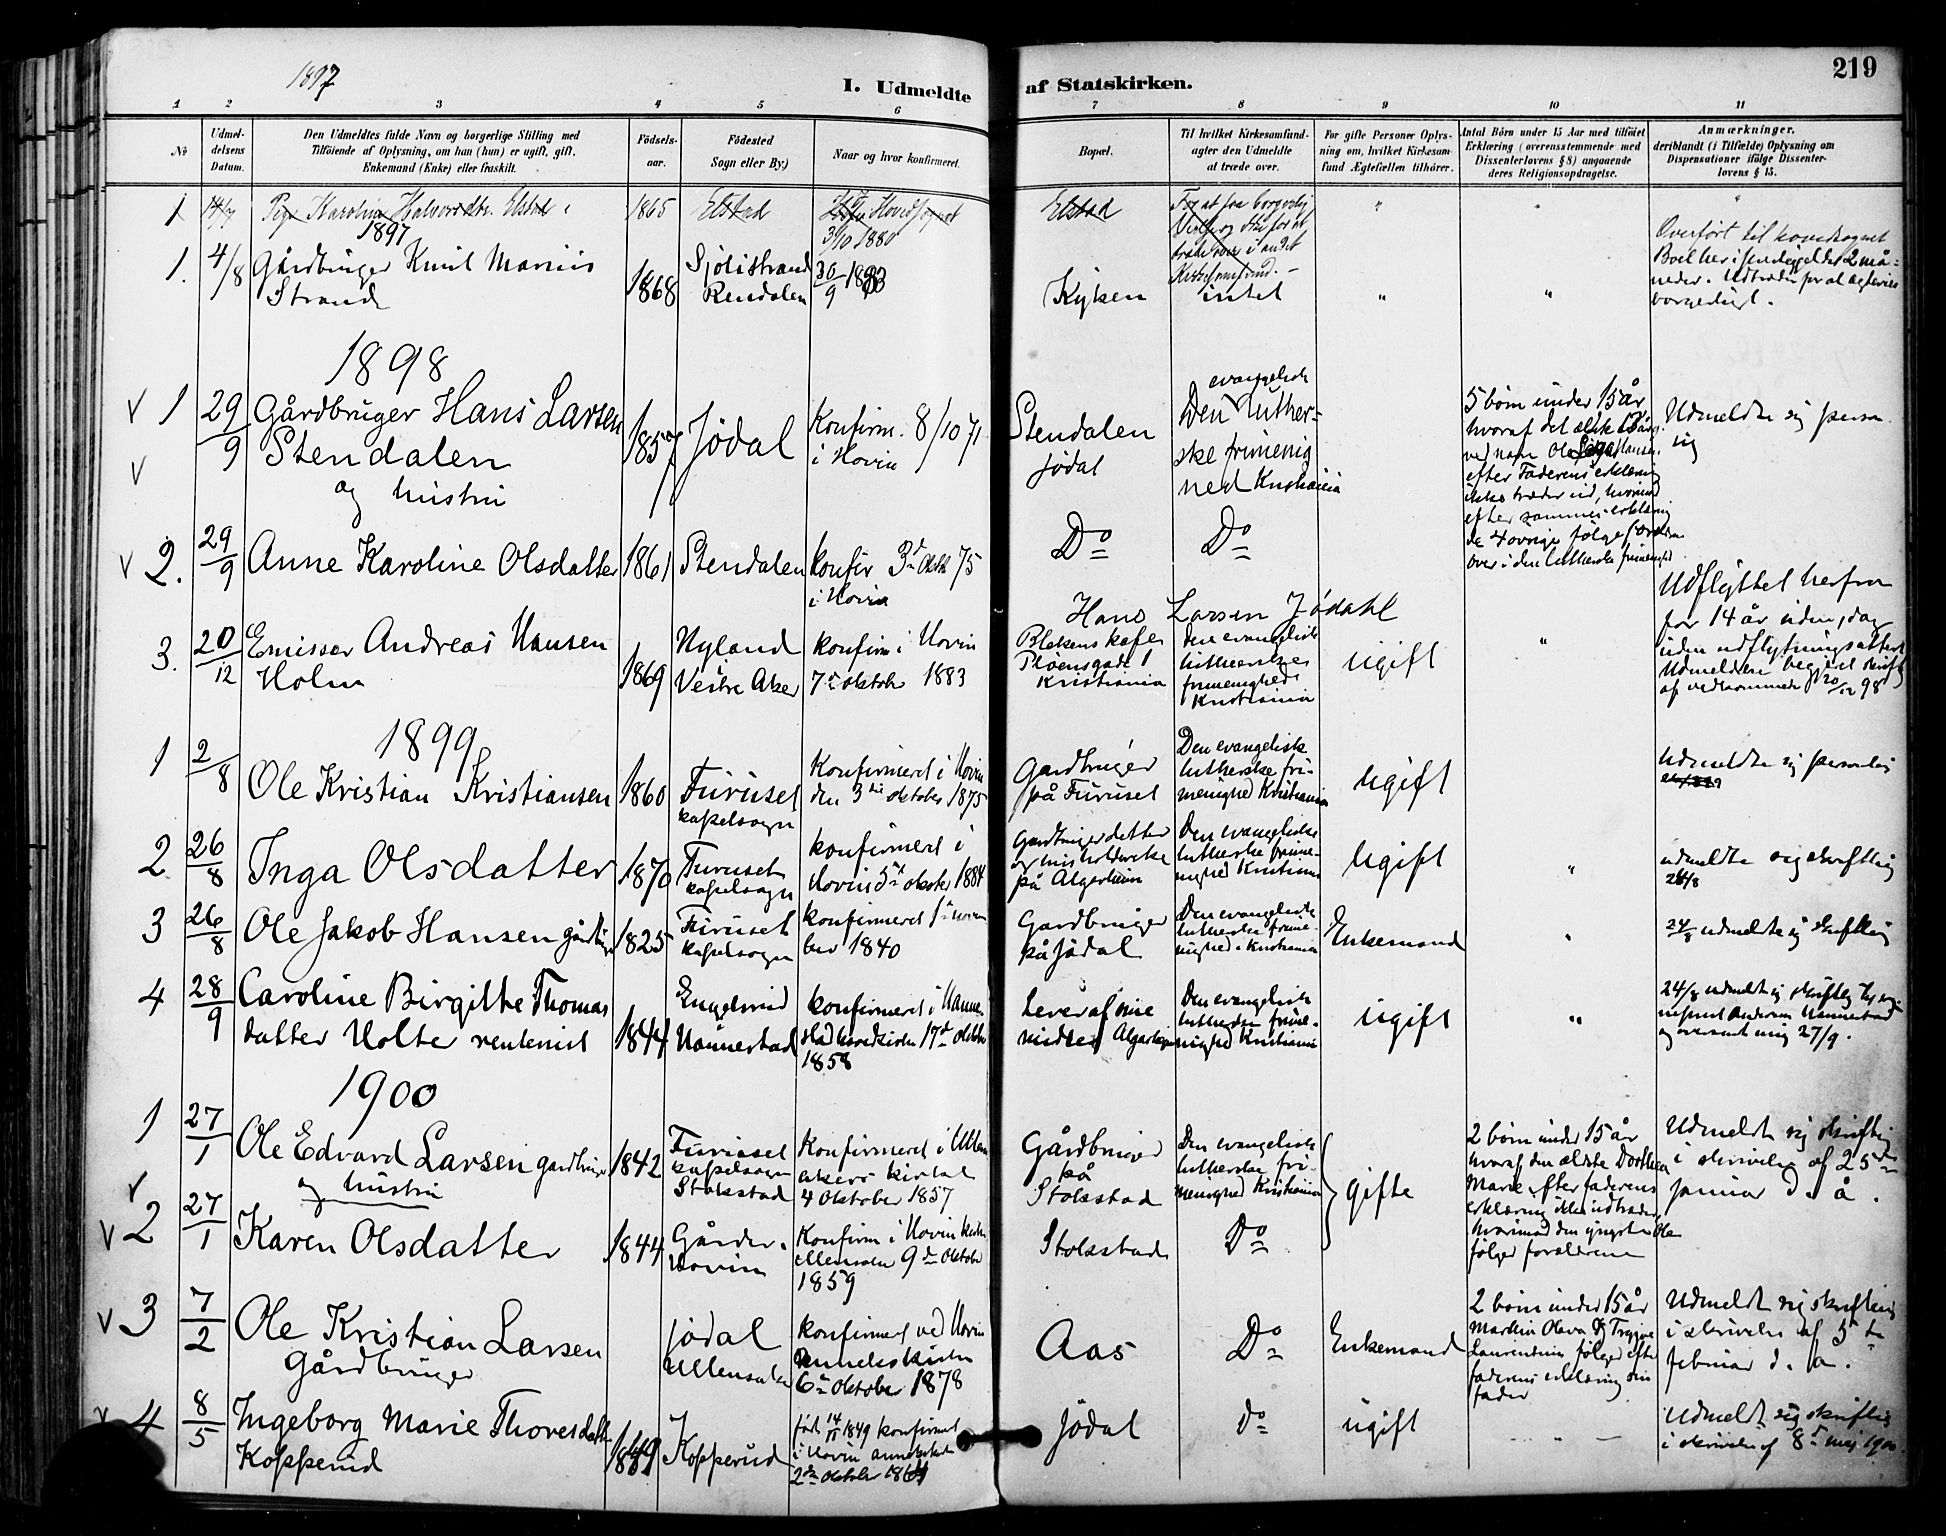 219
1897
I. Udmeldte af Statskirken.
1 2 3 4 5 6 7 8 9 10 11
No
Udmel-
delsens
Datum.
Den Udmeldtes fulde Navn og borgerlige Stilling med
Tilföiende af Oplysning, om han (hun) er ugift, gift,
Enkemand (Enke) eller fraskilt.
Födsels-
aar.
Födested
Sogn eller By.)
Naar og hvor konfirmeret.
Bopæl.
Til hvilket Kirkesamfund-
agter den Udmeldte
at træde over.
For gifte Personer Oplys-
ning om, hvilket Kirkesam-
fund Ægtefællen tilhörer.
Antal Börn under 15 Aar med tilföiet
Erklæring (overensstemmende med
Dissenterlovens § 8) angaaende
deres Religionsopdragelse.
Anmærkninger,
deriblandt (i Tilfælde) Oplysning om
Dispensationer ifölge Dissenter-
lovens § 15.
1 14/7 Pige Karolina Halvorsdtr. Elstad
1865
Elstad
Hovedsognet
3/10 1880
Elstad
1897
1. 4/8 Gårdbruger Knut Marius
Strand
1868
Sjölistrand
Rendalen
30/9 1883
Kyken
intet
"
"
Overført til hovedsognet
borgerligt.
1898
1 29/9 Gårdbruger Hans Larsen
Stendalen
og hustru
1857
Jödal
Konfirm. 8/10 71
i Hovin
Stendalen
Jödal
evangelisk
Den luther-
ske frimenig
hed Kristiania
5 börn under 15 år
hvoraf det ældste
ved navn Ole
efter Faderens erklæring
ikke træder ud, hvorimod
efter samme erklæring
de 4 övrige fölge forældrene
over i den lutherske frimenighed
Udmeldte sig person
lig
2. 29/9 Anne Karoline Olsdatter
1861
Stendalen
konfir 3d Oktbr 75
i Hovin
Do
Do
Hans Larsen Jödahl
3. 20/12 Emissær Andreas Hansen
Holm
1869
Nyland
Vestre Aker
konfirm i Hovin
7de oktober 1883
Kristiania
Den evangelisk
lutherske
frimenighed
Kristiania
ugift
"
Udflyttet herfra
for 14 år siden, dog
uden udflytningsattest
Udmeldelse begjært skriftl
af vedkommende 20/12 98
1899
1 2/8 Ole Kristian Kristiansen
1860
Furuset
kapelsogn
Konfirmeret i Hovin
den 3die oktober 1875
Gardbruger
på Furuset
Den evangelisk
lutherske fri-
menighed Kristiania
Ugift
Udmeldte sig personlig
2 26/8 Inga Olsdatter
1870
Furuset
kapelsogn
konfirmert i
Hovin 5te oktober 1884
Gardbrugerdatter
på Algarheim
Den evangelisk
lutherske frime-
nighed Kristiania
Ugift
"
udmeldte sig skriftlig
24/8
3 26/8 Ole Jakob Hansen gårdbr
1825
Furuset
kapelsogn
konfirmeret
ber 1840
Gardbruger
på Jödal
Den evangelisk
lutherske frime-
nighed i Kristiania
Enkemand
"
24/8 udmeldte sig skriftlig
4 28/9 Caroline Birgitte Thomas
datter Holte rentenist
1844
Engelsrud
Nannestad
konfirmeret i Nanne-
stad hovedkirke 17de oktober
1858
Lever af sine
midler Algarheim
Den evangelisk
lutherske frime-
nighed Kristiania
ugift
"
24/8 udmeldt sig skriftlig
og oversendt mig 27/9.
1900
1 27/1 Ole Edvard Larsen gardbruger
og hustru
1842
Furuset
kapelsogn
Stokstad
Konfirmeret i Ullen
sakers kirke
4 Oktober 1857
Gårdbruger
på
Stokstad
Den evangelisk
lutherske fri-
menighed Kristiania
gifte
2 börn under 15 år
hvoraf den ældste Dorthea
Marie efter faderens
erklæring ikke udtræder,
hvorimod den yngste Ole
fölger forældrene
Udmeldt sig skriftlig
i skrivelse af 25de
januar d. å.
2 27/1 Karen Olsdatter
1844
Gårder.
Hovin
Konfirm i Hovin kirke
Ullensaker 9de oktober
1859
Stokstad
Do
3 7/2 Ole Kristian Larsen
Gårdbruger
Jödal
Ullensaker
konfirmert ved Hovin
annekskirke
6te oktober 1878
Aas
Do
Enkemand
2 börn under 15 år
Martin Olava og Trygve
Laurentius fölger efter
faderens erklæring sin
fader
Udmeldt sig skriftlig
i skrivelse af 5te
februar d. å.
4 8/5 Ingeborg Marie Thoresdatt
Kopperud
1849
Kopperud
född 14/11 1849 konfirmert
i Hovin annekskirke
2den oktober 1864
Jödal
do
ugift
Udmeldt sig skriftlig
i skrivelse af 8de maj 1900